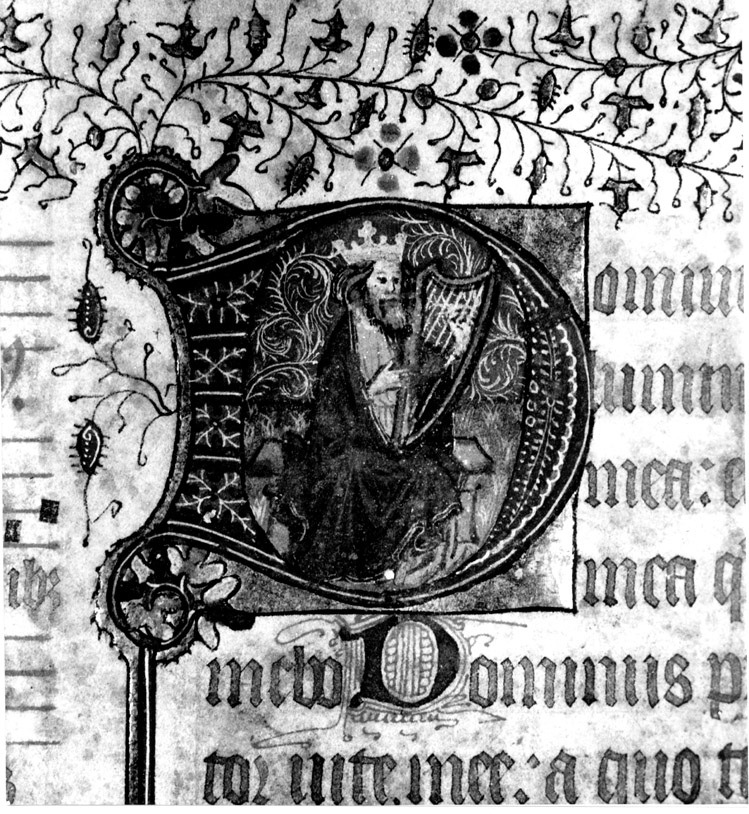 Dominu
lumin
mea: e
mea q
mebo Dominus p
tor uite mee: a quo t